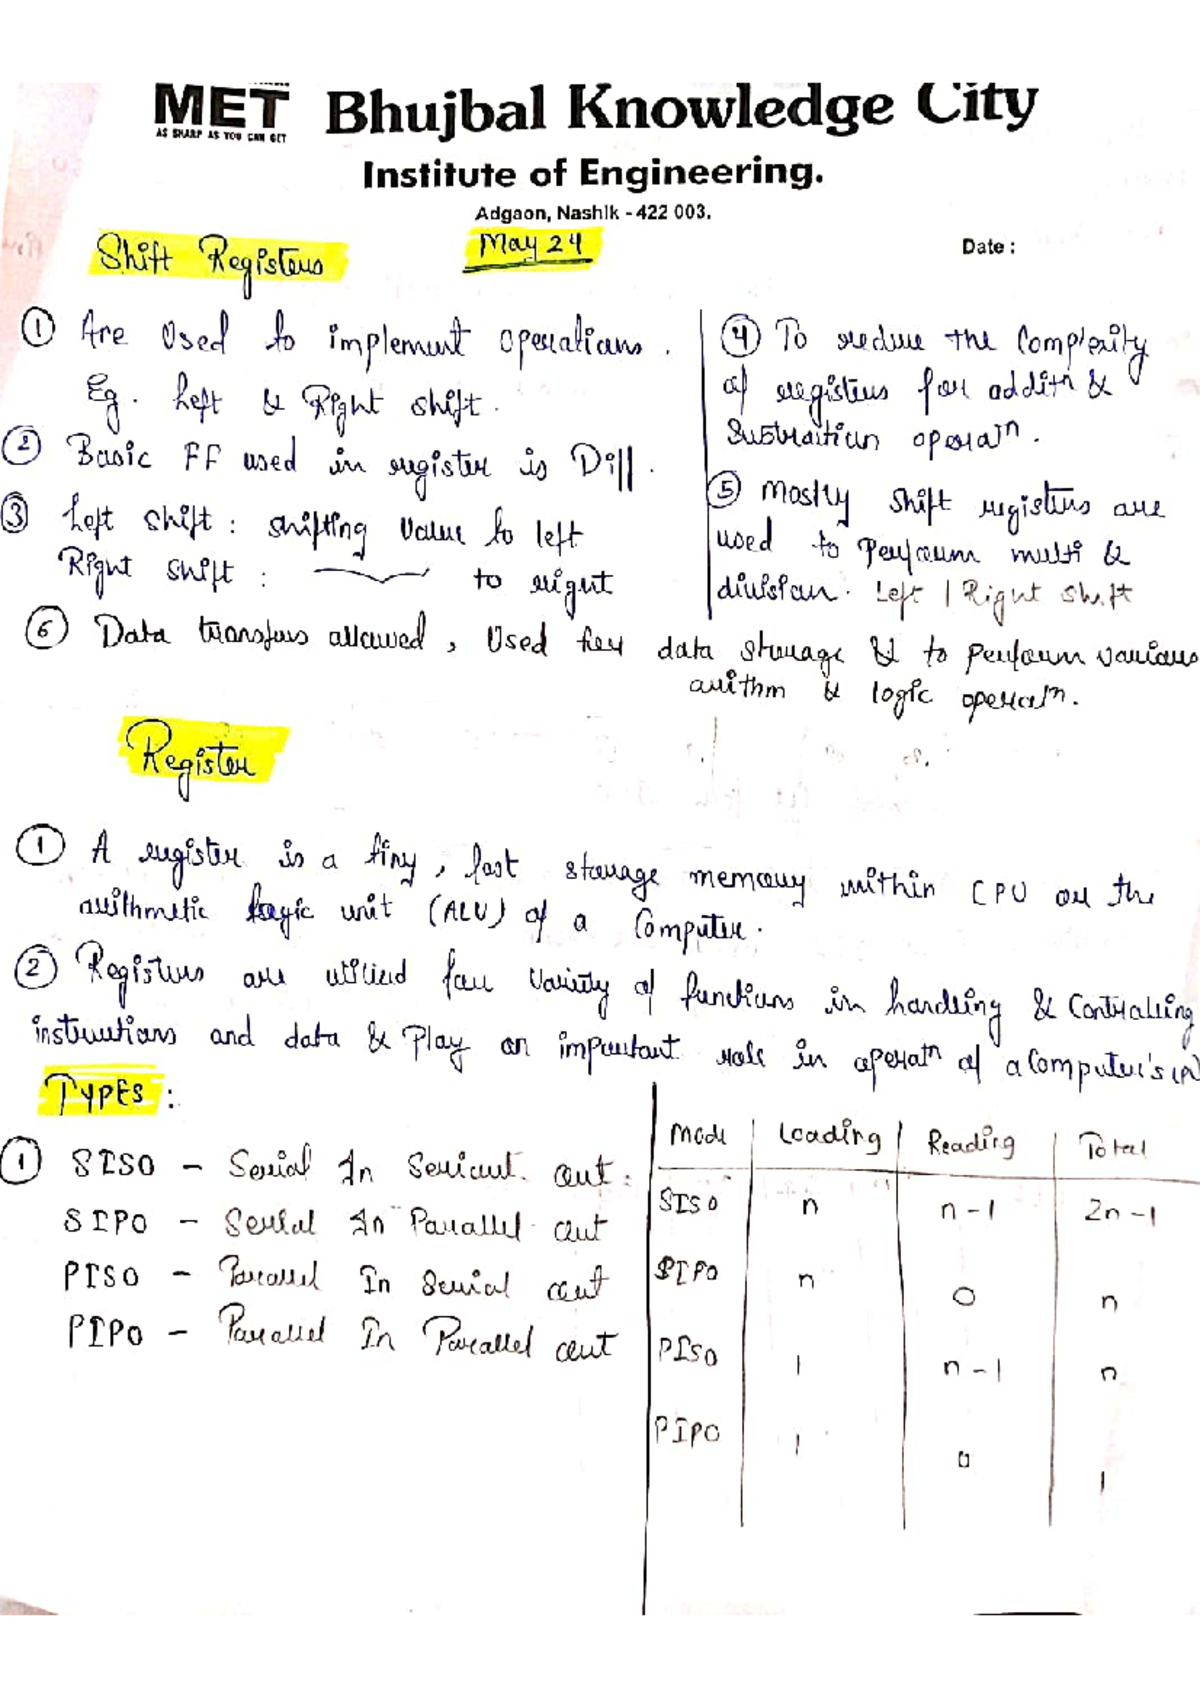 MET Bhujbal Knowledge City
AS SHARP AS YOU CAN GET
Institute of Engineering.
Adgaon, Nashik - 422 003.
Shift Registers
May 24
Date :
① Are Used to implement operations.
Eg. Left & Right shift.
② Basic FF used in register is Dff.
③ Left shift : shifting value to left
Right shift : to right
④ To reduce the Complexity
of registers for additn &
Substraction operatn.
⑤ Mostly shift registers are
used to Perform multi &
division. Left | Right shift
⑥ Data transfers allowed, Used for data storage & to perform various
arithm & logic operatn.
Register
① A register is a tiny, fast storage memory within CPU or the
arithmetic logic unit (ALU) of a Computer.
② Registers are utilied for Variety of functions in handling & Controlling
instructions and data & Play an important role in operatn of a Computer's
TYPES :
① SISO - Serial In Serial out.
SIPO - Serial In Parallel out
PISO - Parallel In Serial out
PIPO - Parallel In Parallel out
Mode Loading Reading Total
SISO n n-1 2n-1
SIPO n 0 n
PISO 1 n-1 n
PIPO 1 0 1